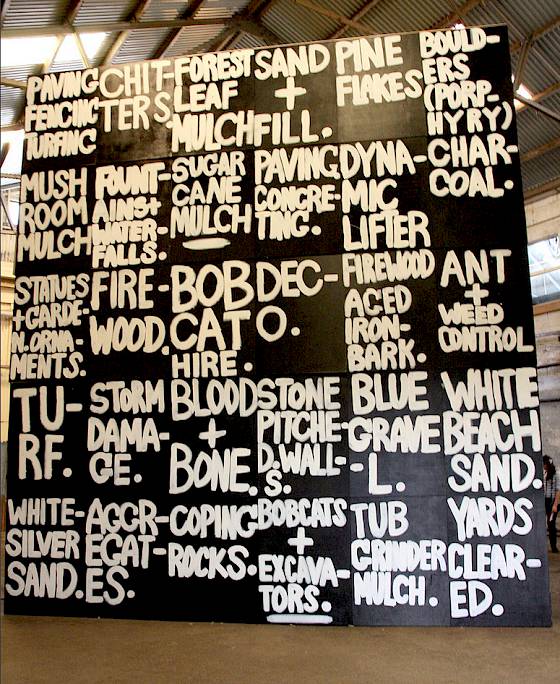 PAVING
FENCING
TURFING
CHIT-
TERS.
FOREST
LEAF
MULCH
SAND
+
FILL.
PINE
FLAKES
BOULD-
ERS
(PORP-
HYRY)
MUSH
ROOM
MULCH
FOUNT-
AINS+
WATER-
FALLS.
SUGAR
CANE
MULCH
PAVING
CONCRE-
TING.
DYNA-
MIC
LIFTER
CHAR-
COAL.
STATUES
+GARDE-
N.ORNA-
MENTS.
FIRE-
WOOD.
BOB
CAT
HIRE.
DEC-
O.
FIREWOOD
AGED
IRON-
BARK.
ANT
+
WEED
CONTROL
TU-
RF.
STORM
DAMA-
GE.
BLOOD
+
BONE.
STONE
PITCHE-
D.WALL-
S.
BLUE
GRAVE
-L.
WHITE
BEACH
SAND.
WHITE-
SILVER
SAND.
AGGR-
EGAT-
ES.
COPING
ROCKS.
BOBCATS
+
EXCAVA-
TORS.
TUB
GRINDER
MULCH.
YARDS
CLEAR-
ED.